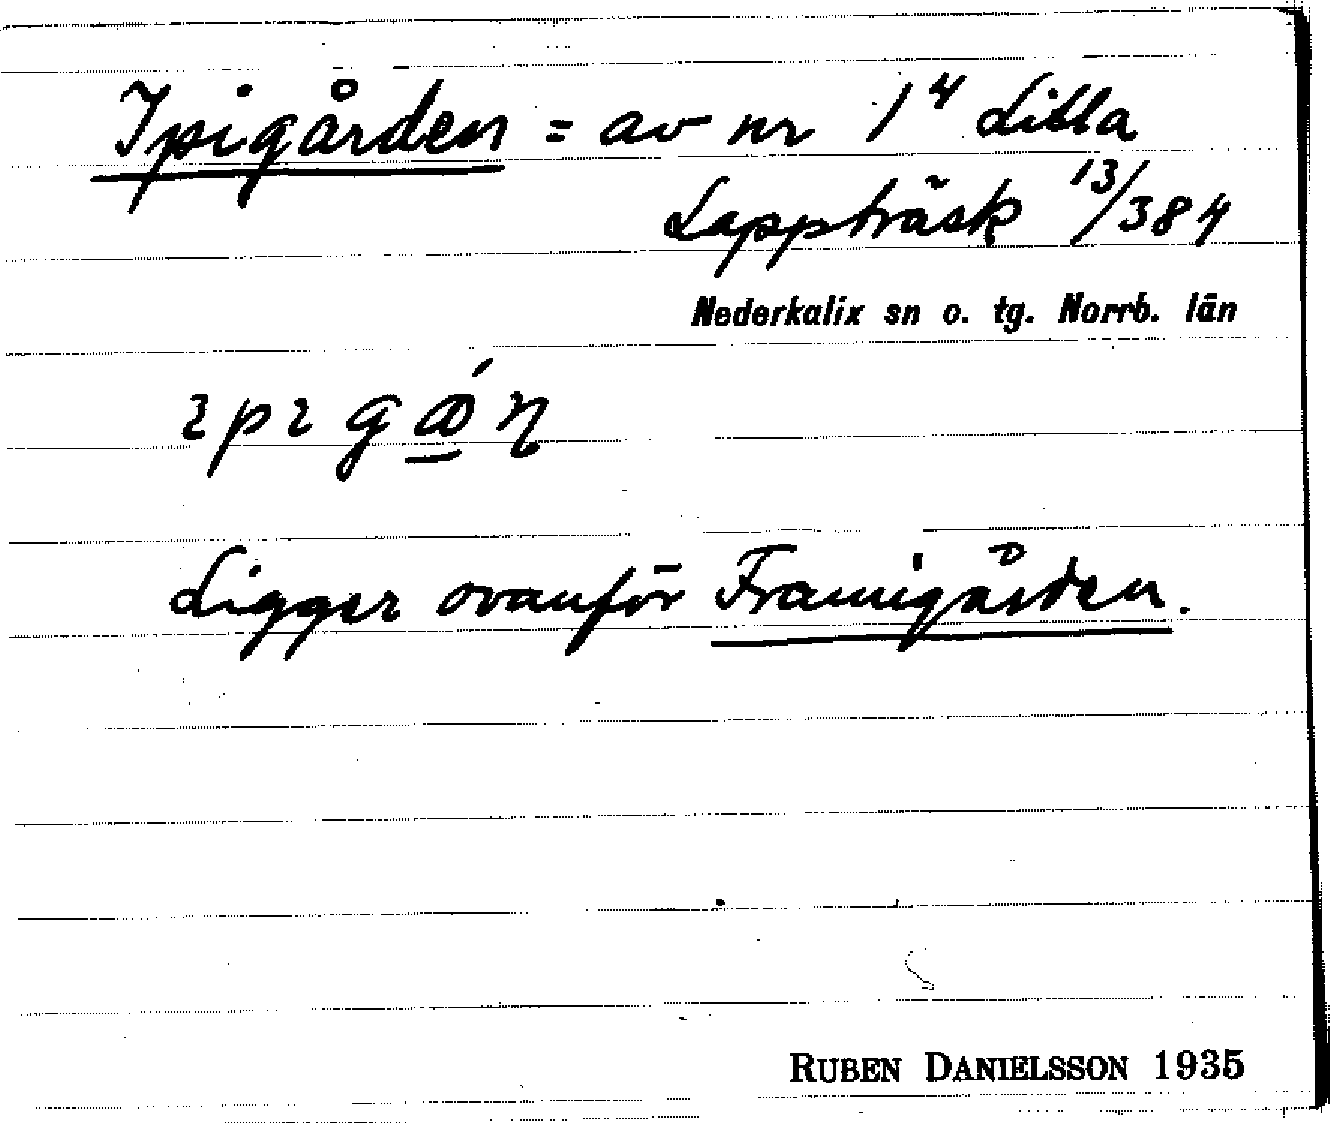 Ipigården = av nr 1⁴ Lilla
Lappträsk 13/384
Nederkalix sn o. tg. Norrb. län
Ligger ovanför Framigården.
RUBEN DANIELSSON 1935